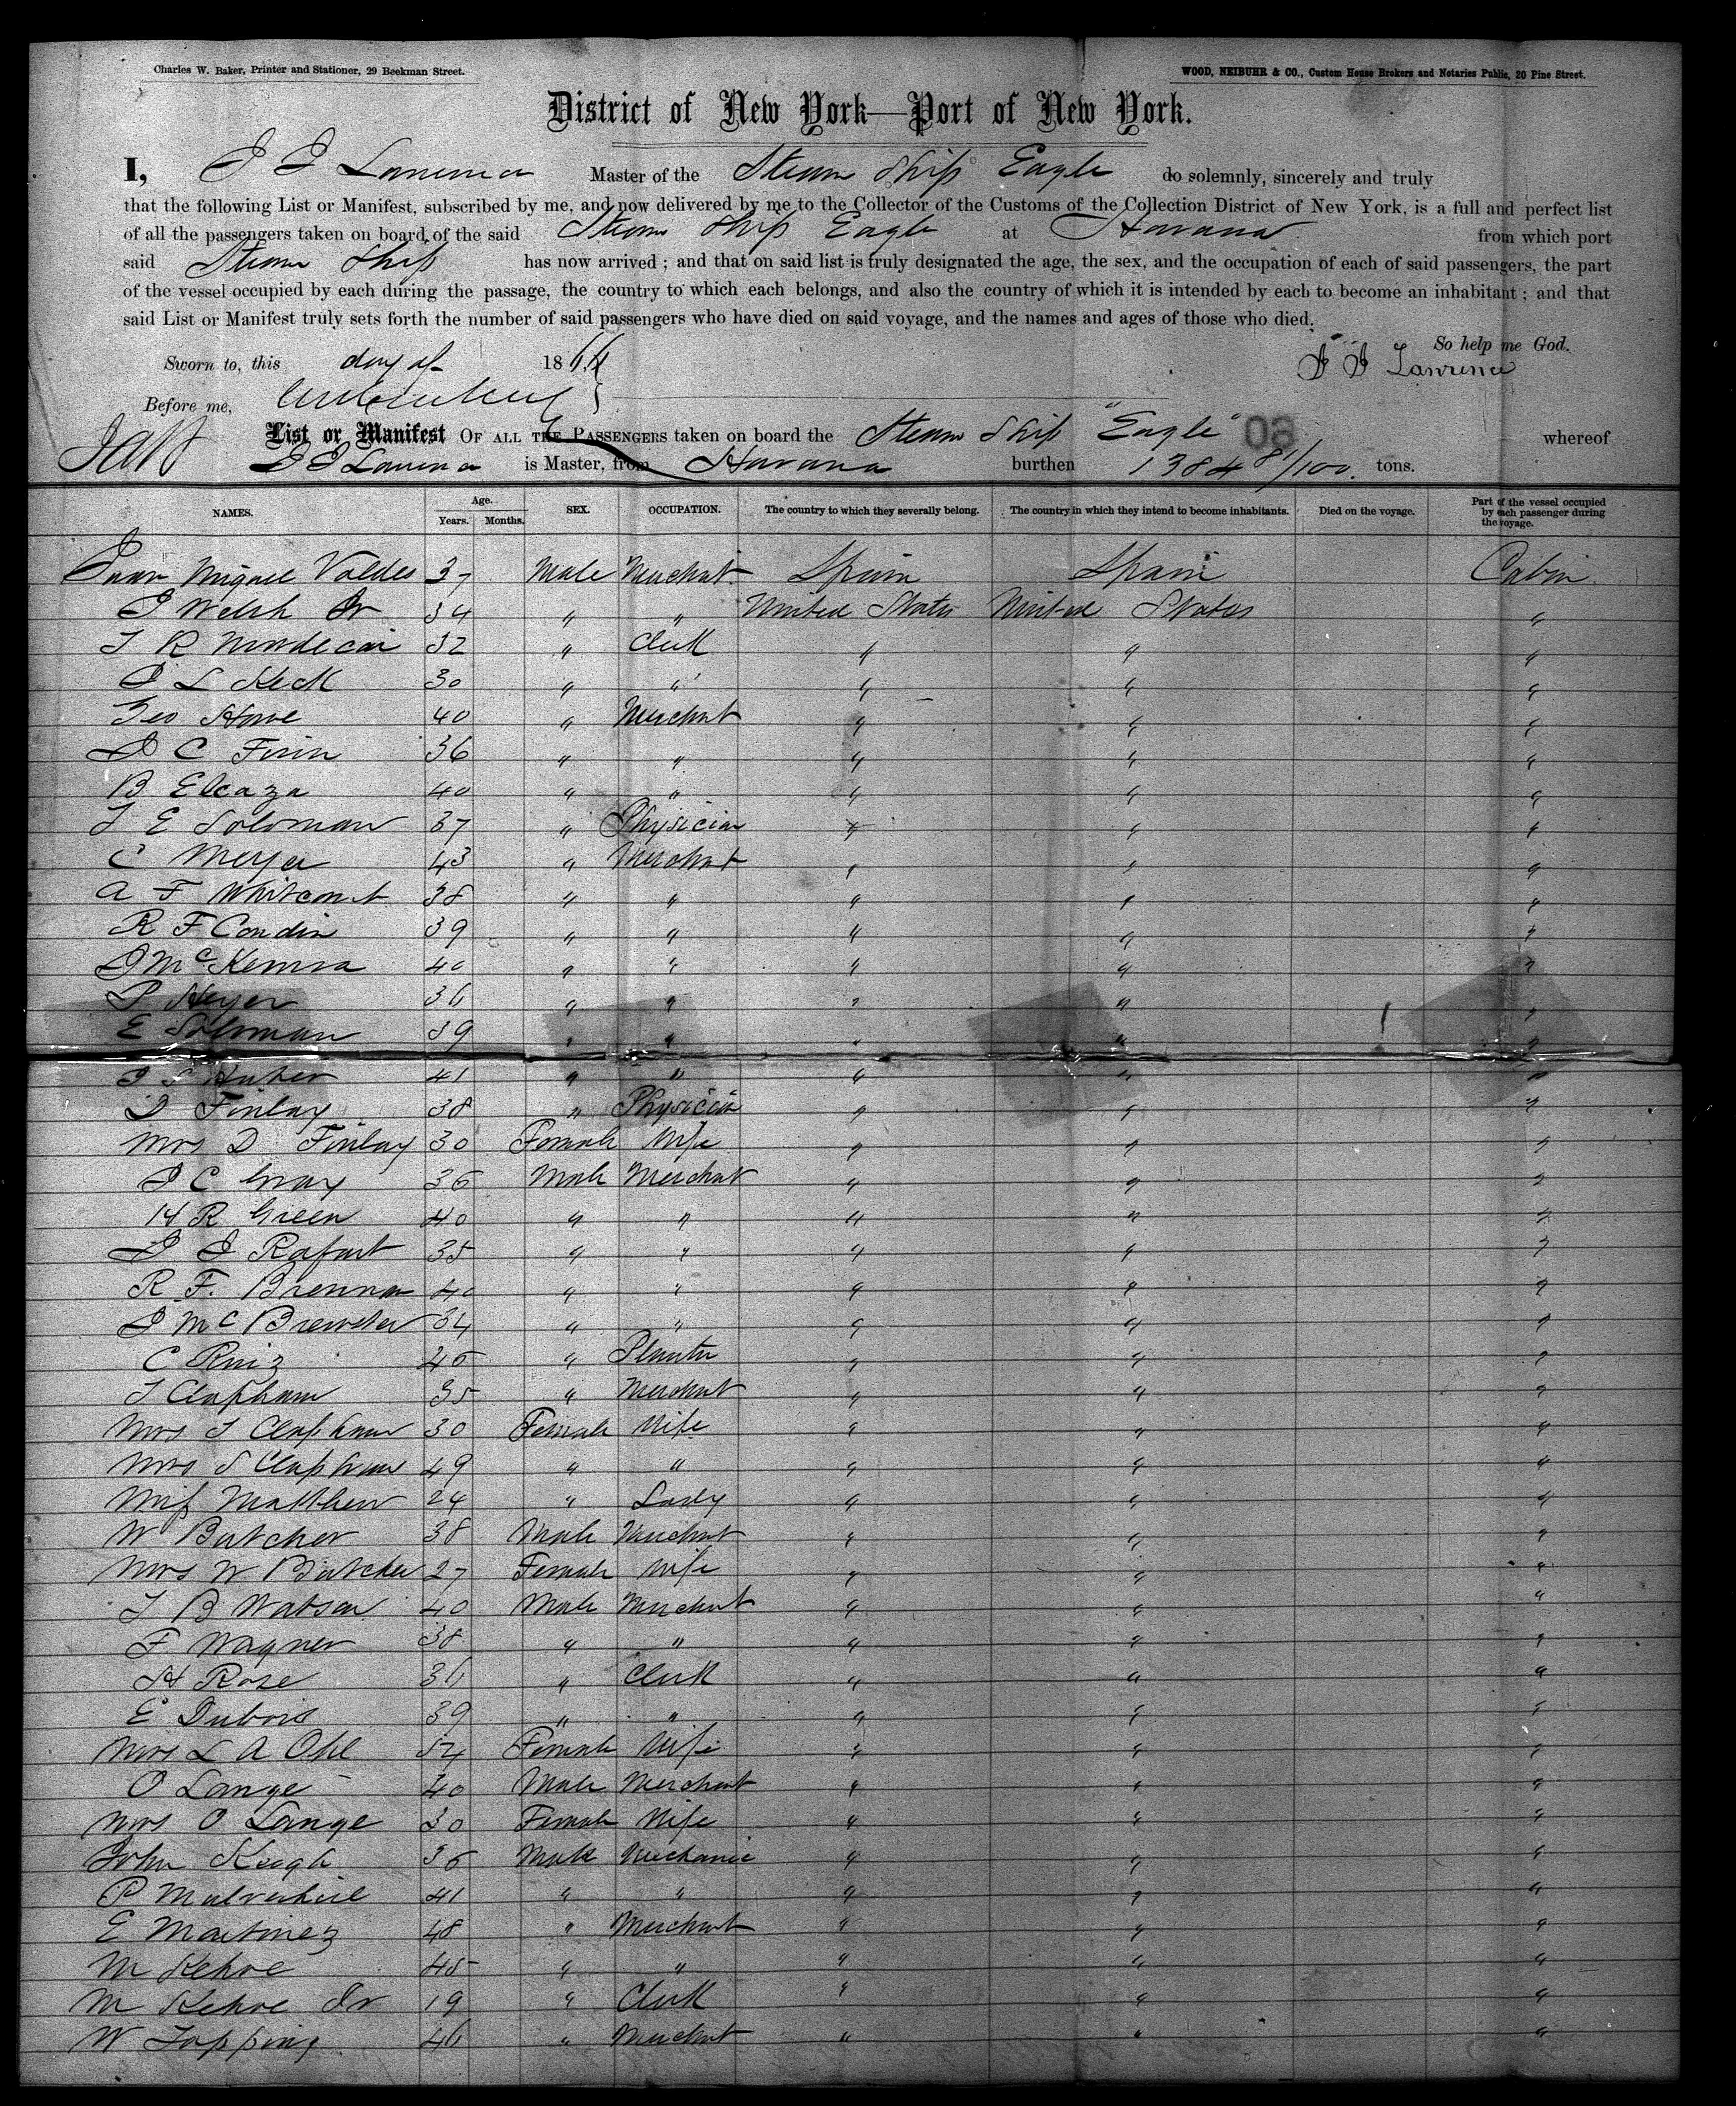 Charles W. Baker, Printer and Stationer, 29 Beekman Street.
WOOD, NEIBUHR & CO., Custom House Brokers and Notaries Public, 20 Pine Street.
District of New York—Port of New York.
I, Master of the Steam Ship Eagle do solemnly, sincerely and truly
that the following List or Manifest, subscribed by me, and now delivered by me to the Collector of the Customs of the Collection District of New York, is a full and perfect list
of all the passengers taken on board of the said Steam Ship Eagle at Havana from which port
said Steam Ship has now arrived ; and that on said list is truly designated the age, the sex, and the occupation of each of said passengers, the part
of the vessel occupied by each during the passage, the country to which each belongs, and also the country of which it is intended by each to become an inhabitant ; and that
said List or Manifest truly sets forth the number of said passengers who have died on said voyage, and the names and ages of those who died.
So help me God.
Sworn to, this day of 1866
Lawrence
Before me,
List or Manifest OF ALL THE PASSENGERS taken on board the Steam Ship "Eagle" whereof
is Master, from Havana burthen 1384 81/100 tons.
NAMES. Age. Years. Months. SEX. OCCUPATION. The country to which they severally belong. The country in which they intend to become inhabitants. Died on the voyage. Part of the vessel occupied by each passenger during the voyage.
Juan Miguel Valdes 37 Male Merchat Spain Spain Cabin
J Welsh Jr 34 " " United States United States "
T R Mordecai 32 " Clerk " " "
J L Keck 30 " " " " "
Geo Howe 40 " Merchat " " "
J C Finn 36 " " " " "
B Elcaza 40 " " " " "
T E Soloman 37 " Physician " " "
C Meyer 43 " Merchat " " "
A F Whitcomb 38 " " " " "
R F Condin 39 " " " " "
J McKenna 40 " " " " "
P Heyer 36 " " " " "
E Soloman 39 " " " " "
J S Huber 41 " " " " "
D Finlay 38 " Physician " " "
Mrs D Finlay 30 Female Wife " " "
J C Gray 36 Male Merchat " " "
H R Green 40 " " " " "
J J Rafart 35 " " " " "
R F. Brennan 40 " " " " "
J Mc Brewster 34 " " " " "
C Ruiz 45 " Planter " " "
T Clapham 35 " Merchat " " "
Mrs T Clapham 30 Female Wife " " "
Mrs S Clapham 49 " " " " "
Miss Matthew 24 " Lady " " "
W Butcher 38 Male Merchat " " "
Mrs W Butcher 27 Female Wife " " "
T B Watson 40 Male Merchat " " "
F Wagner 38 " " " " "
H Rose 36 " Clerk " " "
E Dubois 39 " " " " "
Mrs L A Ohl 54 Female Wife " " "
O Lange 40 Male Merchant " " "
Mrs O Lange 30 Female Wife " " "
John Keogh 36 Male Mechanic " " "
P Mulvehill 41 " " " " "
E Martinez 48 " Merchant " " "
M Kehoe 45 " " " " "
M Kehoe Jr 19 " Clerk " " "
W Topping 46 " Merchat " " "